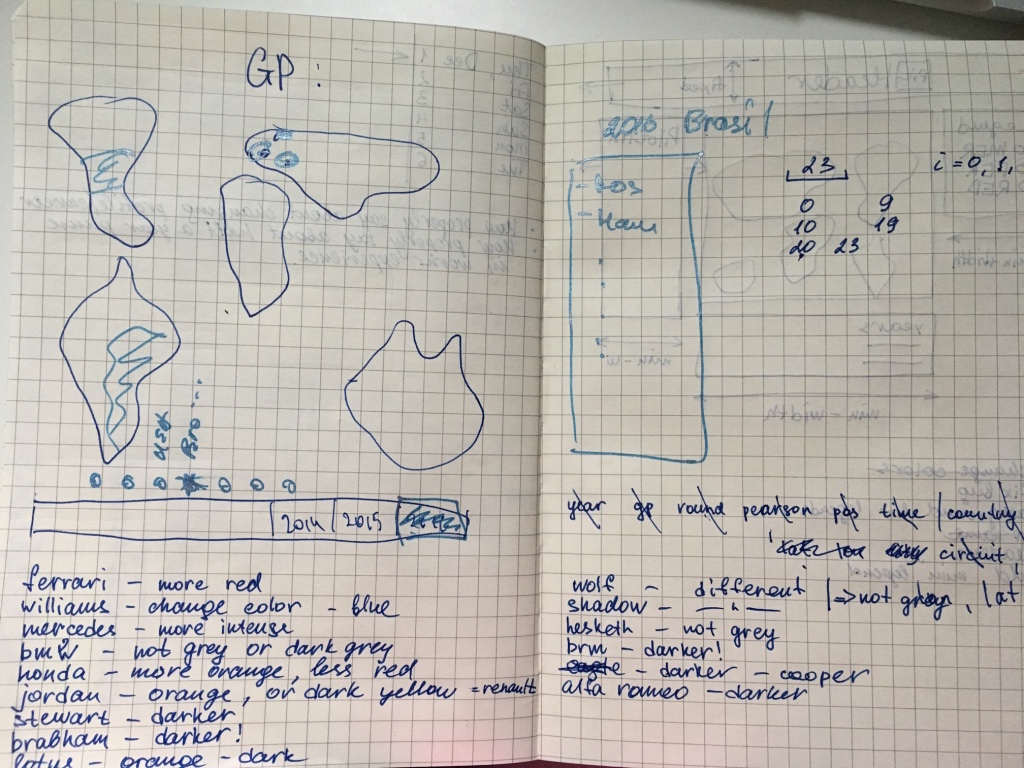 GP :
USA
Bro ...
2014 2015
ferrari – more red
williams – change color – blue
mercedes – more intense
bmw – not grey or dark grey
honda – more orange, less red
jordan – orange, or dark yellow = renault
stewart – darker
brabham – darker!
lotus – orange – dark
2016 Brasil
- Ham
23
i = 0, 1,
0 9
10 19
20 23
year gp round pos time / country
circuit,
wolf – different |=> not grey, lat
shadow – — " —
hesketh – not grey
brm – darker!
eagle – darker – cooper
alfa romeo – darker